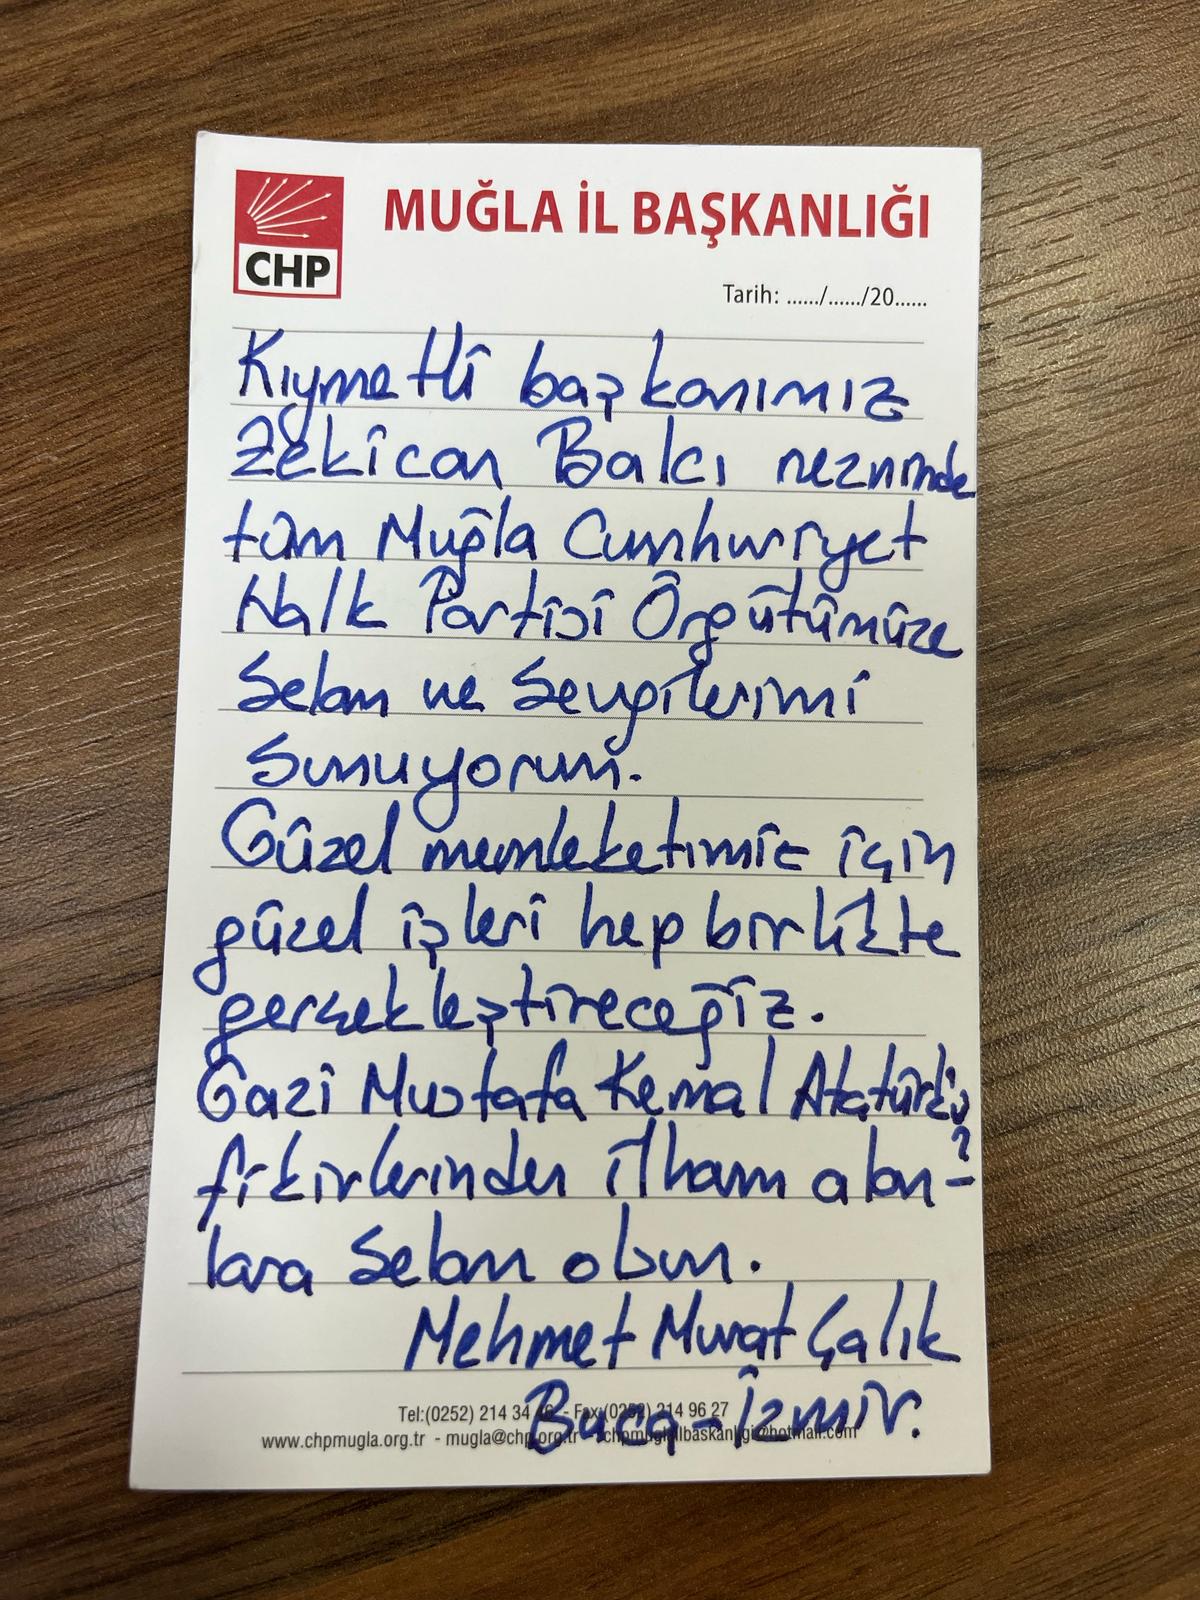 CHP
MUĞLA İL BAŞKANLIĞI
Tarih: ....../....../20......
Kıymetli başkanımız
Zekican Balcı neznınde
tüm Muğla Cumhuriyet
Halk Partisi Örgütümüze
Selam ve Sevgilerimi
Sunuyorum.
Güzel memleketimiz için
güzel işleri hep birlikte
gerçekleştireceğiz.
Gazi Mustafa Kemal Atatürk'ü
fikirlerinden ilham alan-
lara Selam olsun.
Mehmet Murat Çalık
Buca-İzmir.
Tel:(0252) 214 34 - Fax:(0252) 214 96 27
www.chpmugla.org.tr - mugla@chp.org.tr - chpmuglailbaskanligi@hotmail.com